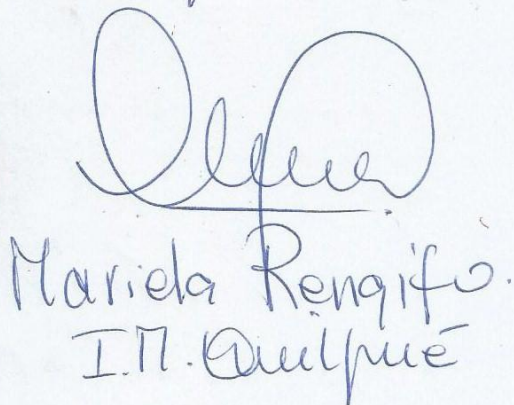 Mariela Rengifo.
I.M. Quilpué